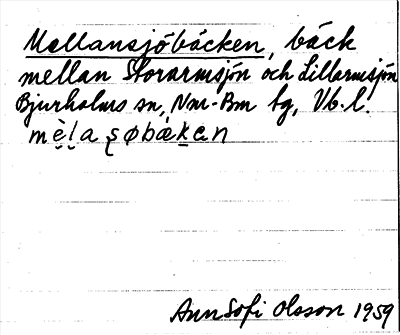 Mellansjöbäcken, bäck
mellan Storarmsjön och Lillarmsjön
Bjurholms sn, Nm-Bm tg, Vb. l.
mèla søbákɐn
AnnSofi Olsson 1959